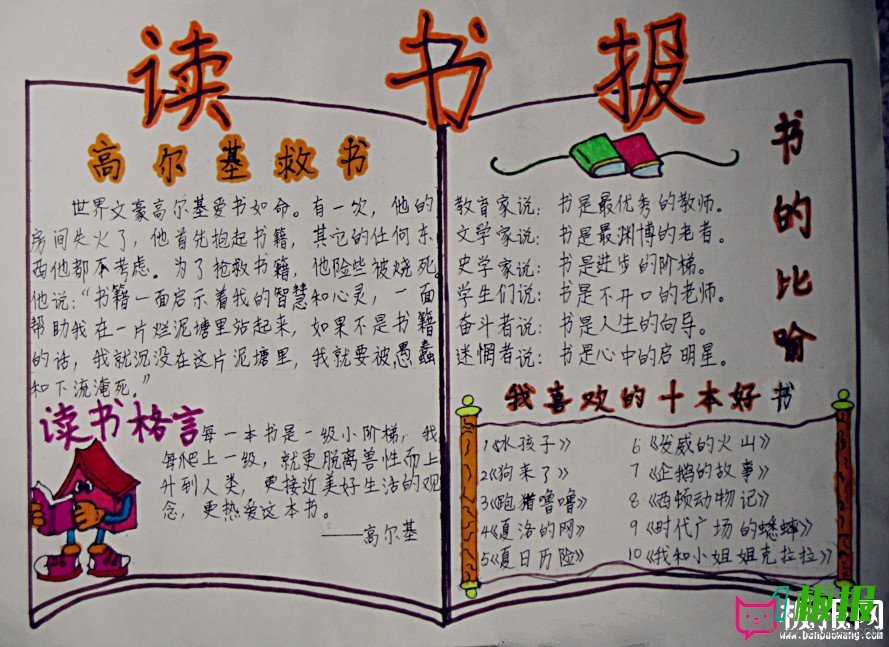 读书报
高尔基救书
世界文豪高尔基爱书如命。有一次，他的
房间失火了，他首先抱起书籍，其它的任何东
西他都不考虑。为了抢救书籍，他险些被烧死。
他说：“书籍一面启示着我的智慧和心灵，一面
帮助我在一片烂泥塘里站起来，如果不是书籍
的话，我就沉没在这片泥塘里，我就要被愚蠢
和下流淹死。”
读书格言
每一本书是一级小阶梯，我
每爬上一级，就更脱离兽性而上
升到人类，更接近美好生活的观
念，更热爱这本书。
——高尔基
书的比喻
教育家说：书是最优秀的教师。
文学家说：书是最渊博的老者。
史学家说：书是进步的阶梯。
学生们说：书是不开口的老师。
奋斗者说：书是人生的向导。
迷惘者说：书是心中的启明星。
我喜欢的十本好书
1《水孩子》
2《狗来了》
3《跑猪噜噜》
4《夏洛的网》
5《夏日历险》
6《发威的火山》
7《企鹅的故事》
8《西顿动物记》
9《时代广场的蟋蟀》
10《我和小姐姐克拉拉》
板报
板报网
www.banbaowang.com